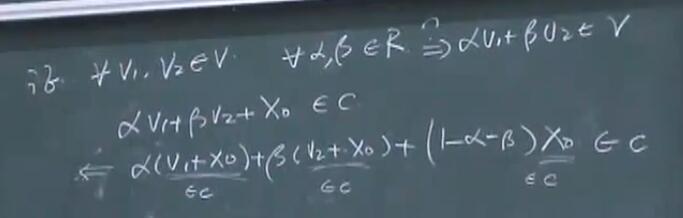 ∀ V₁, V₂ ∈ V ∀ α, β ∈ R ⇒ αV₁ + βV₂ ∈ V
αV₁ + βV₂ + X₀ ∈ C
⇐ α(V₁ + X₀) + β(V₂ + X₀) + (1-α-β) X₀ ∈ C
∈C ∈C ∈C